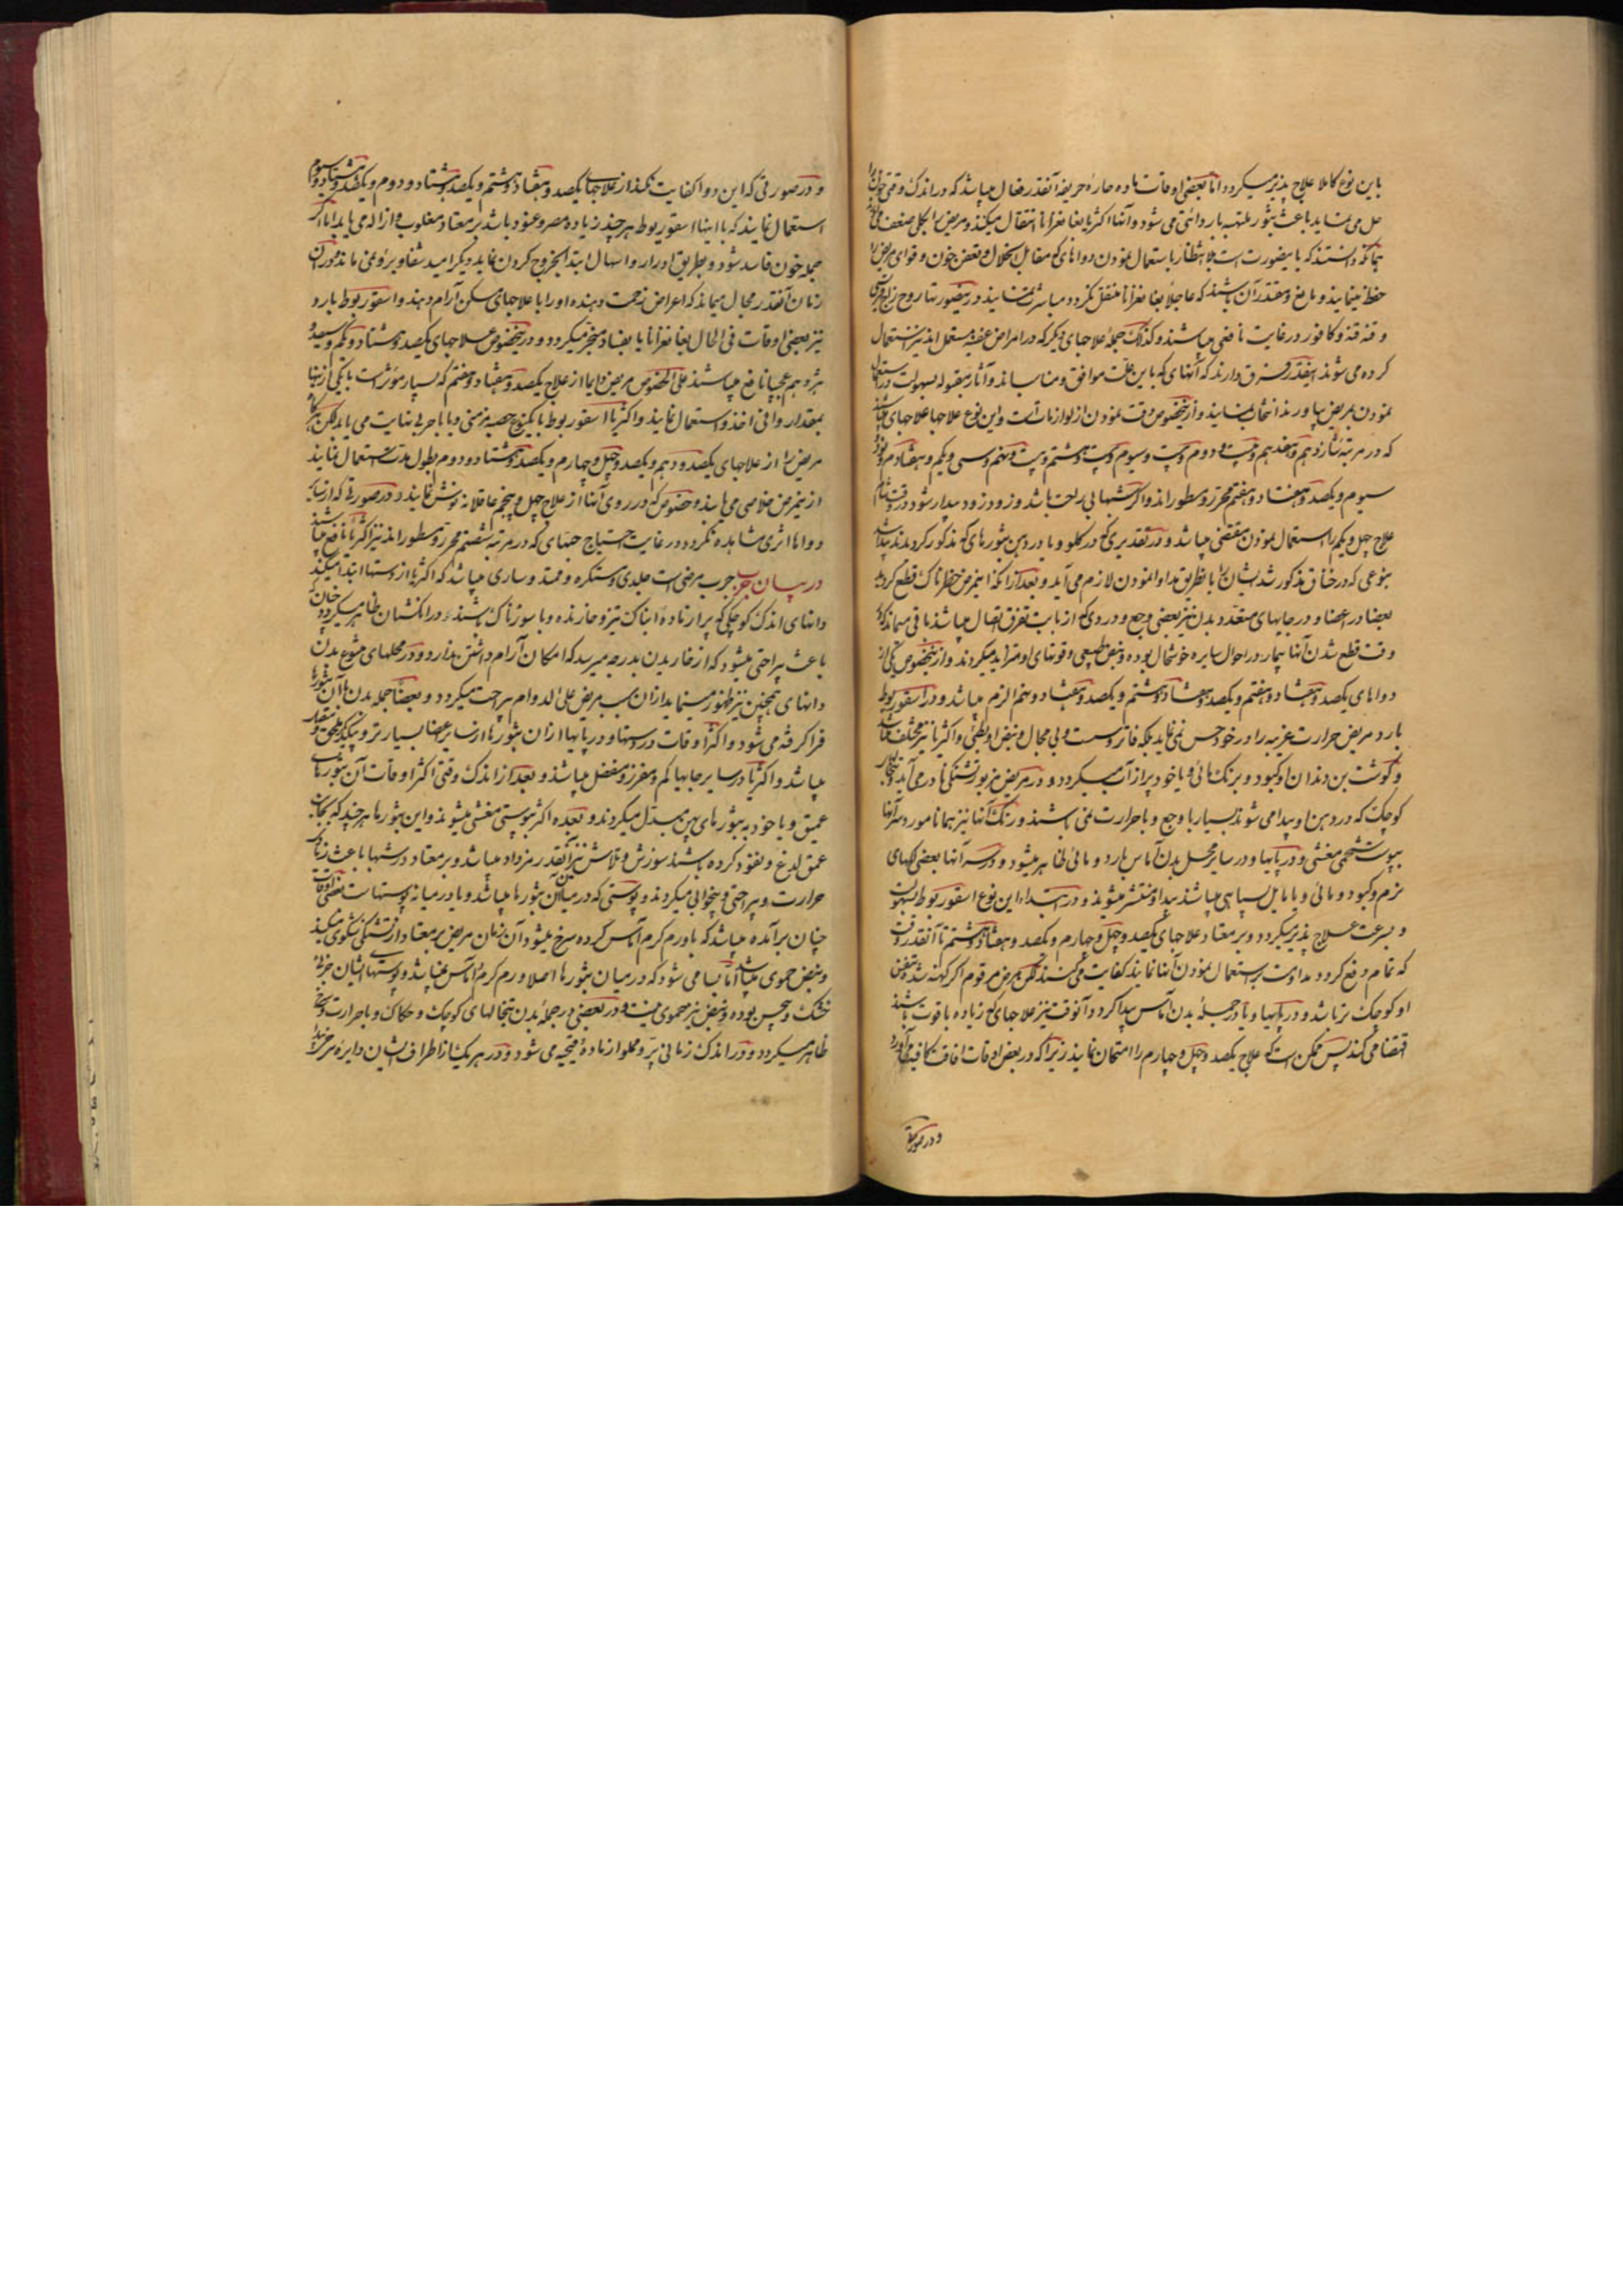 باین نوع کاملا علاج پذیر میکردد اما بعضی اوقات ماده حاره حریفه آنقدر فعال میباشد که در اندک وقتی خون را
حل می نماید باعث بثور ملتهبه بار دانئی می شود و آنها اکثریا بغانغرانا انتقال میکند و مریض را بکلی ضعف
حفظ مینمایند و مانع و مقتدر آن باشند که عاجلا بغانغرانا منتقل نکردد مباشرت نمایند در اینصورتها روح زاج
و قنه قنه و کافور در غایت نافعی میباشند و کذلک جمله علاجهای دیکر که در امراض عفنه مستعمل اند نیز استعمال
کرده می شوند اینقدر فرق دارند که آنهای که باین علت موافق و مناسب اند و آثار مقبوله بسهولت در استعمال
نمودن بمریض بیاورند انتخاب نمایند و از اینخصوص دقت نمودن از لوازمات است و این نوع علاجها علاجهای میباشند
که در مرتبه شانزدهم و هفدهم و بیست و دوم و بیست و سیوم و بیست و هشتم و بیست و نهم و سی و یکم و هفتادم و نود
سیوم و یکصد و هفتاد و هفتم محرر و مسطور اند و اکر شبها بی راحت باشد و زود زود بیدار شود در وقت شام
علاج چهل و یکم را استعمال نمودن مقتضی میباشد و در تقدیری که در کلو و یا در دهن بثورهای که مذکور کردیدند پیدا شد
بنوعی که در خناق مذکور شد ایشان را با نطریق مداوا نمودن لازم می آید و بعد از آنکه اینمرض خطرناک قطع کردید
بعضا در اعضا و در جایهای متعدد بدن نیز بعضی وجع و دردی که از بابت تفرق اتصال میباشد باقی میماند که از
وقت قطع شدن آنها بیمار در احوال سایره خوشحال بوده و نبض طبیعی و قوتهای او متزاید میکردند و از اینخصوص یکی از
دواهای یکصد و هفتاد و هفتم و یکصد و هفتاد و هشتم و یکصد و هفتاد و نهم الزم میباشد و در اسقوربوط
بارد مریض حرارت غریبه را در خود حس نمی نماید بلکه فاتر و سست و بی مجال و نبض او بطئی و اکثریا نیز مختلف میباشد
و کوشت بن دندان او کبود و برنک مائی و یا خود پر از آب میکردد و در مریض مزبور تشنکی نادر می آید تبخالهای
کوچک که در دهن او پیدا می شوند بسیار با وجع و با حرارت نمی باشند و رنک آنها نیز همانا مورد سر آنها
بپوست شحمی مغشی و در پایها و در سایر محل بدن آماس بارد و مائی ظاهر میشود و در سر آنها بعضی لکهای
نرم و کبود و مائی و یا مایل بسیاهی میباشند پیدا و منتشر میشوند و در ابتدا این نوع اسقوربوط بسهولت
و بسرعت علاج پذیر میکردد و بر معتاد علاجهای یکصد و چهل و چهارم و یکصد و هفتاد و هشتم تا آنقدر وقت
که تمام دفع کردد مداومت باستعمال نمودن آنها نمایند کفایت می کنند لکن مرض مرقوم اکر کهنه شد و نبض
او کوچک تر باشد و در پایها و یا در جمله بدن آماس پیدا کردد آنوقت نیز علاجهای که زیاده باقوت باشند
اقتضا می کند پس ممکن است که علاج یکصد و چهل و چهارم را امتحان نمایند زیرا که در بعض اوقات افاقت کافیه می آورد
و در صورتی
و در صورتی که این دوا کفایت نکند از علاجهای یکصد و هفتاد و هشتم و یکصد و هشتاد و دوم و یکصد و هشتاد و سوم
استعمال نمایند که با اینها اسقوربوط هر چند زیاده مصر و عنود باشد بر معتاد مغلوب و ازاله می یابد اما اکر
جمله خون فاسد شود و بطریق ادرار و اسهال ابتدا بخروج کردن نماید دیکر امید شفا و برء نمی ماند و در آن
زمان آنقدر مجال میماند که اعراض زحمت دهنده او را با علاجهای مسکن آرام دهند و اسقوربوط بارد
نیز بعضی اوقات فی الحال بغانغرانا یا بفساد منجر میکردد و در اینخصوص علاجهای یکصد و هشتاد و یکم و سیصد و
هژدهم عجبا نافع میباشند علی الخصوص مریض دایما از علاج یکصد و هفتاد و هفتم که بسیار مؤثر است با یکی از اینها
بمقدار وافی اخذ و استعمال نمایند و اکثریا اسقوربوط با یکنوع حصبه مزمنی و یا با جربی نهایت می یابد لکن اکر
مریض را از علاجهای یکصد و دهم و یکصد و چهل و چهارم و یکصد و هشتاد و دوم بطول مدت استعمال نمایند
از اینمرض خلاصی می یابند و خصوص که در روی آنها از علاج چهل و پنجم عاقلانه نوش نمایند و در صورتی که از سایر
دواها اثری مشاهده نکردد در غایت احتیاج حبهای که در مرتبه شصتم محرر و مسطور اند نیز اکثریا نافع میباشند
در بیان جرب جرب مرضی است جلدی و مستکره و ممتد و ساری میباشد که اکثریا از دستها ابتدا میکند
دانهای اندک کوچکی که پر از ماده ابناک تیز و خارنده و با سوزناک باشند در انکشتان ظاهر میکردد
باعث بیراحتی میشود که از خاریدن بدرجه میرسد که امکان آرام داشتن ندارد و در محلهای متنوع بدن
دانهای همچنین نیز ظهور مینماید از آن سبب مریض علی الدوام بیراحت میکردد و بعضا جمله بدن با آن بثورها
فرا کرفته می شود و اکثر اوقات در دستها و در پایها از آن بثورها از سایر اعضا بسیار تر و بیکدیکر ملحق
میباشد و اکثریا در سایر جایها کم و مفرز و منفصل میباشند و بعد از اندک وقتی اکثر اوقات آن بثورهای
عمیق و یا خود به بثورهای پهن مبدل میکردند و بعده اکثر بپوستی مغشی میشوند و این بثورها هر چند که بجانب
عمق لدغ و نفوذ کرده باشند سوزش و تلاش نیز آنقدر مزداد میباشد و بر معتاد در شبها باعث زیاده
حرارت و بیراحتی و بیخوابی میکردند و پوستی که در میان این بثورها میباشد و یا در میانه پوستهاست بعضی اوقات
چنان برآمده میباشد که با ورم کرم آماس کرده سرخ میشود آن زمان مریض بر معتاد از تشنکی شکوی میکند
و نبض حموی میباشد اما بسا می شود که در میان بثورها اصلا ورم کرم و آماس نمیباشد و پوستهای ایشان جزئی
خشک و یبس بوده و نبض نیز حموی نیست و در بعضی در جمله بدن تبخالهای کوچک و حکاک و با حرارت و سرخ
ظاهر میکردد و در اندک زمانی پر و مملو از ماده قیحیه می شود و در هر یک از اطراف ایشان دایره سرخ